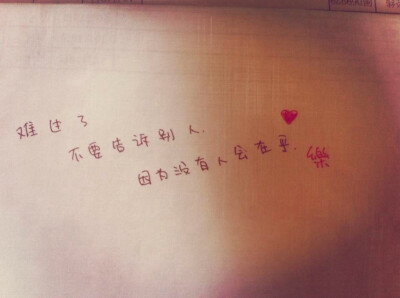 难过了
不要告诉别人.
因为没有人会在乎.
樂